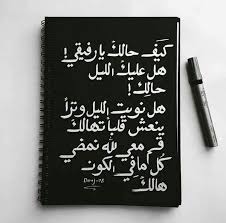 كيف حالك يا رفيقي!
هل عليك الليل
حالك!
هل نويت الليل وترًا
ينعش قلبا تهالك
قم معي لله نمضي
كل ما في الكون
هالك